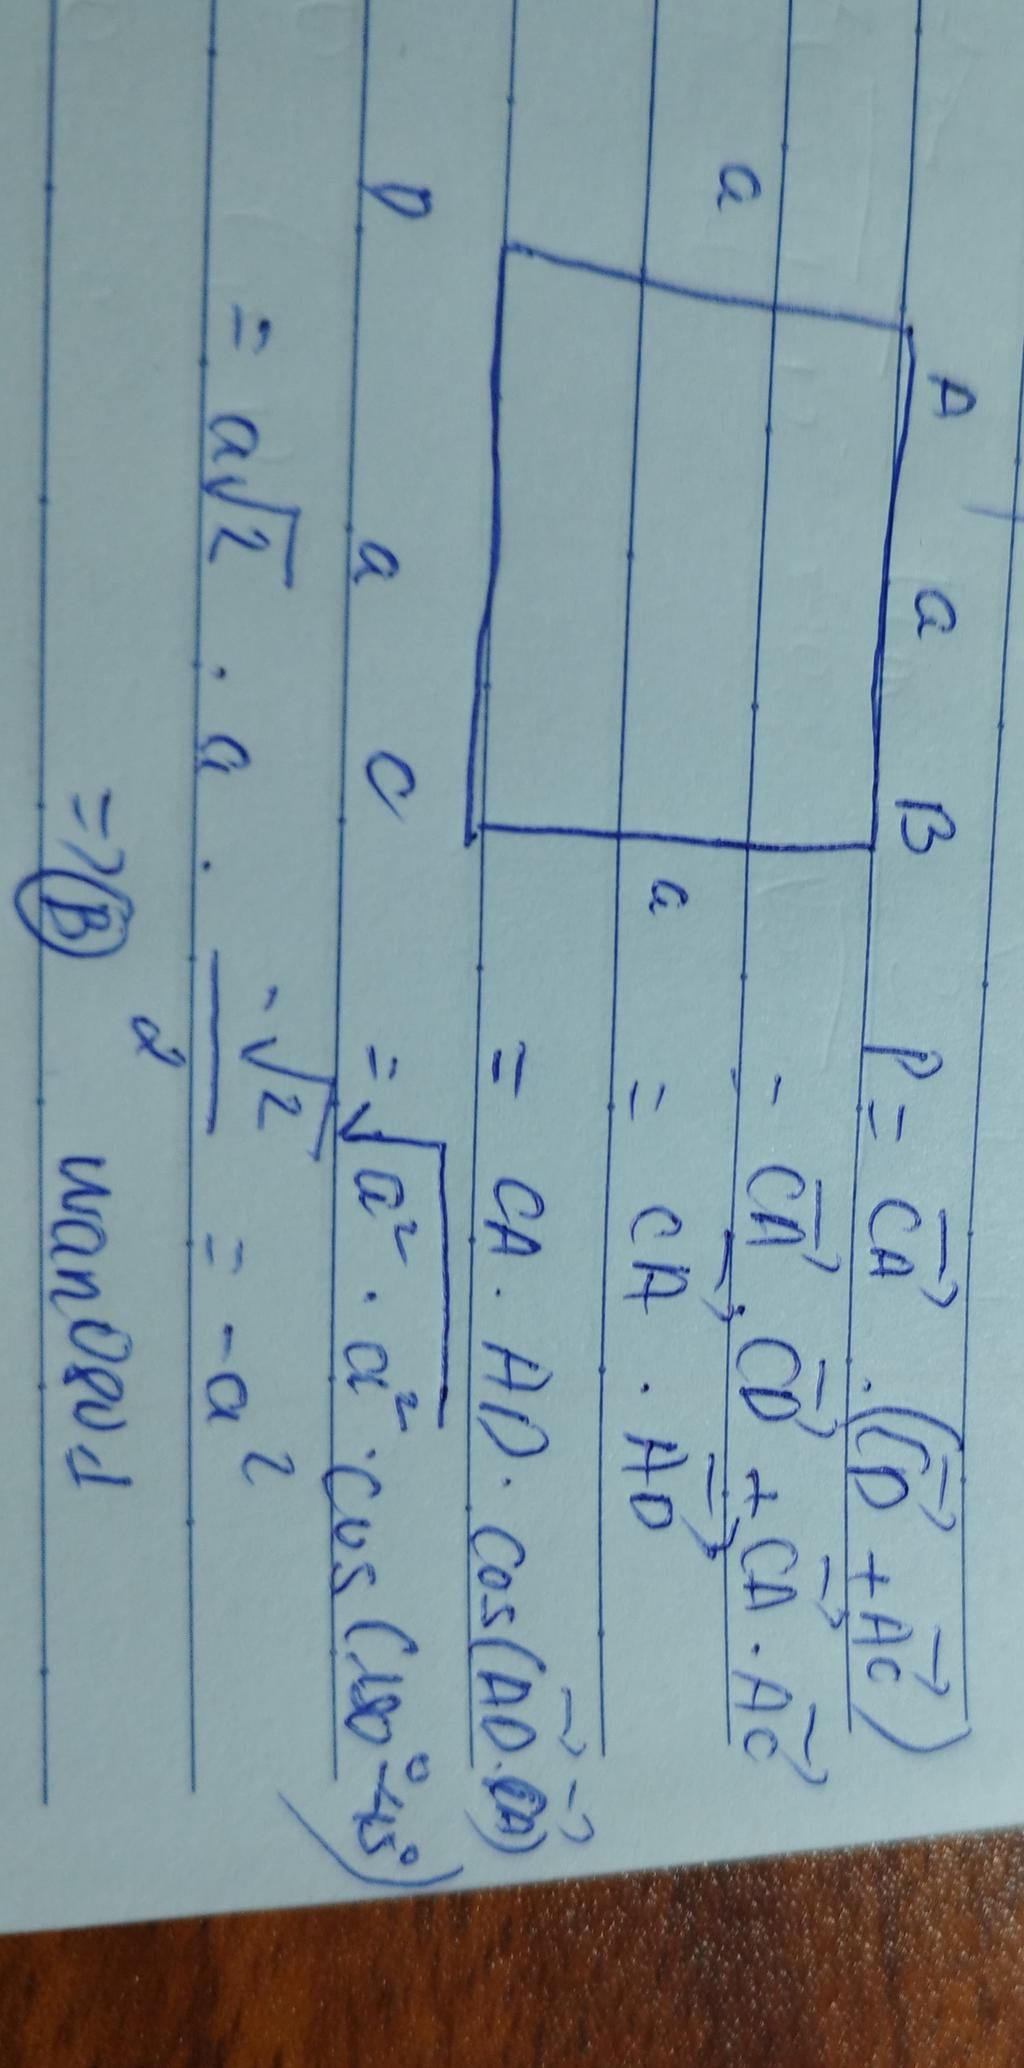 A a B
a
a
D a C
P = CA→ . (CD→ + AC→)
= CA→ . CD→ + CA→ . AC→
= CA→ . AD→
= CA . AD . cos(AD→ . CA→)
= √a² . a² . cos(180° - 45°)
= a√2 . a . -√2/2 = -a²
=> B wan0801